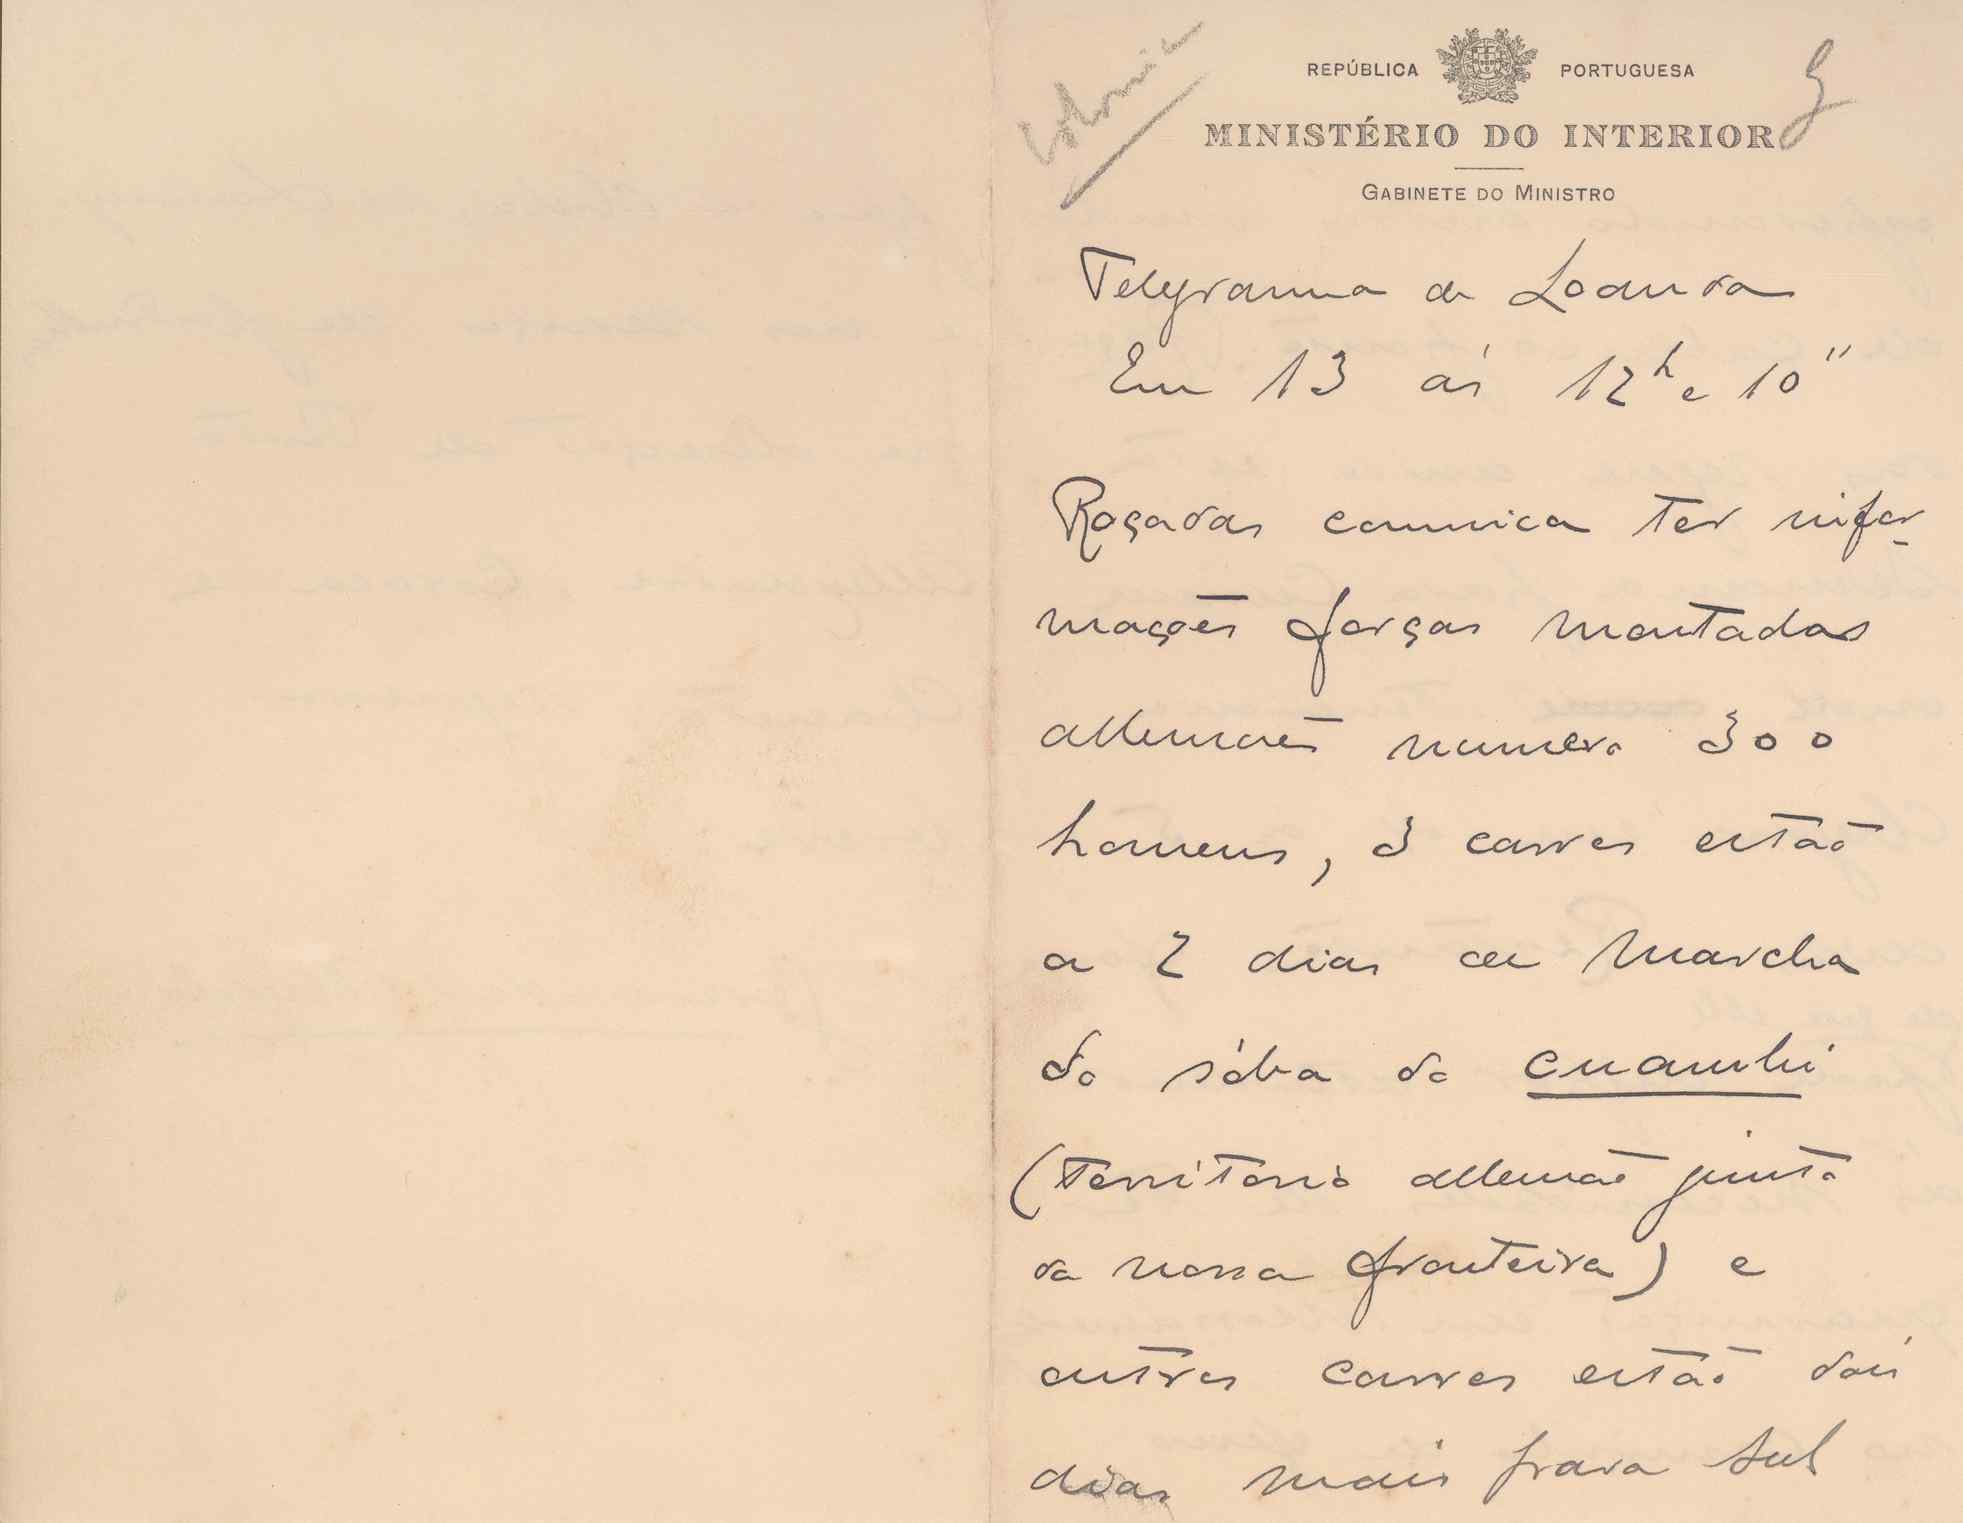 Colonia
REPÚBLICA PORTUGUESA
MINISTÉRIO DO INTERIOR
GABINETE DO MINISTRO
Telegramma de Loanda
Em 13 ás 12h e 10"
Roçadas comunica ter infor-
mações forças montadas
allemães numero 300
homens, 3 carros estão
a 2 dias de marcha
do sóba do cuambi
(territorio allemão junto
da nossa fronteira) e
outros carros estão dois
dias mais para sul